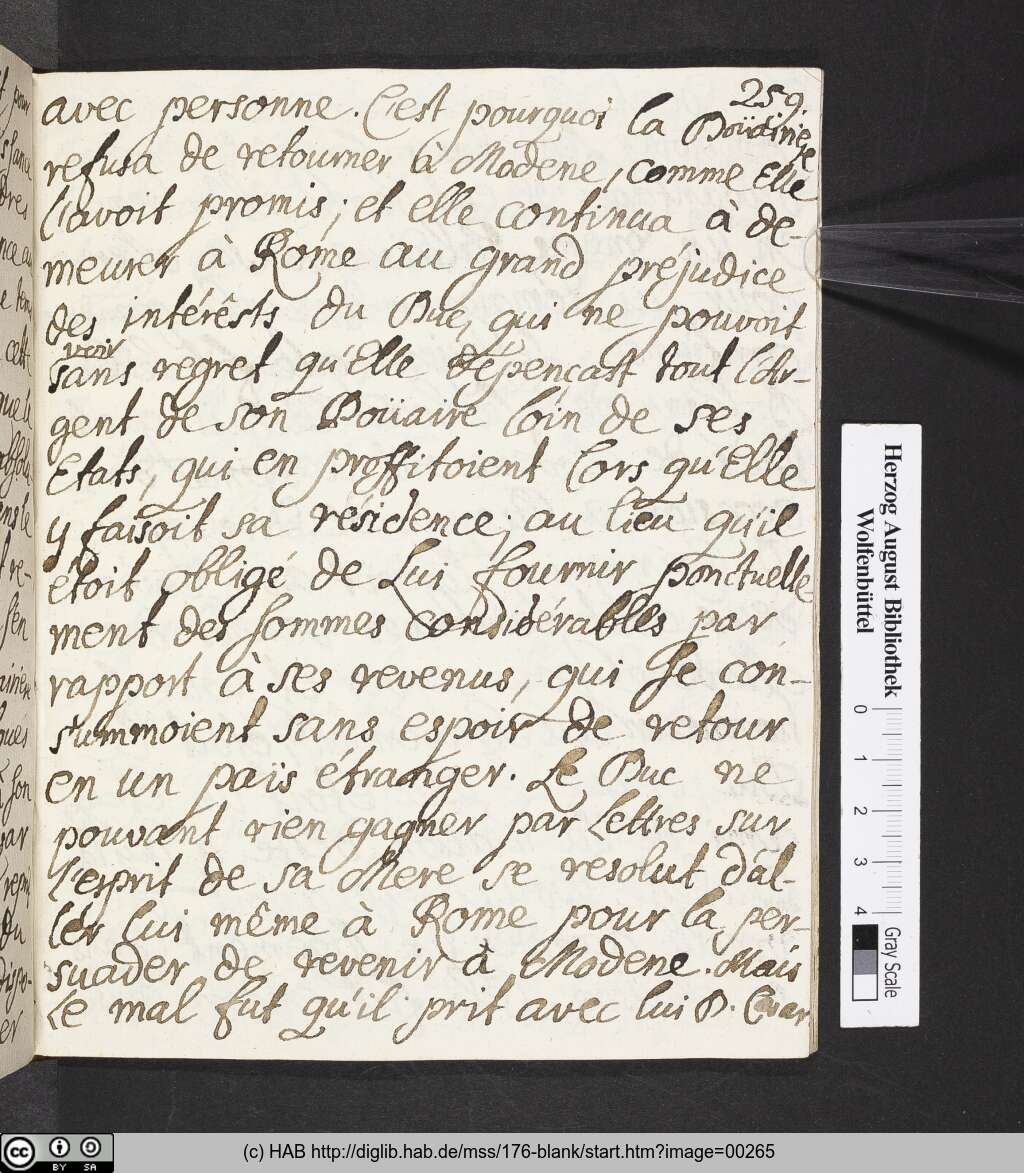 259.
avec personne. C'est pourquoi la Doüairiere
refusa de retourner à Modene, comme Elle
l'avoit promis; et elle continua à de-
meurer à Rome au grand préjudice
des intérêsts du Duc, qui ne pouvoit
venir
sans regret qu'Elle dépençast tout l'Ar-
gent de son Doüaire loin de ses
Etats, qui en proffitoient lors qu'Elle
y faisoit sa résidence; au lieu qu'il
étoit obligé de Lui fournir ponctuelle-
ment des sommes considérables par
rapport à ses revenus, qui se con-
summoient sans espoir de retour
en un païs étranger. Le Duc ne
pouvant rien gagner par Lettres sur
l'esprit de sa Mere se resolut d'al-
ler lui même à Rome pour la per-
suader de revenir à Modene. Mais
le mal fut qu'il prit avec lui D. Cesar
Herzog August Bibliothek
Wolfenbüttel
0 1 2 3 4
Gray Scale
cc BY SA
(c) HAB http://diglib.hab.de/mss/176-blank/start.htm?image=00265